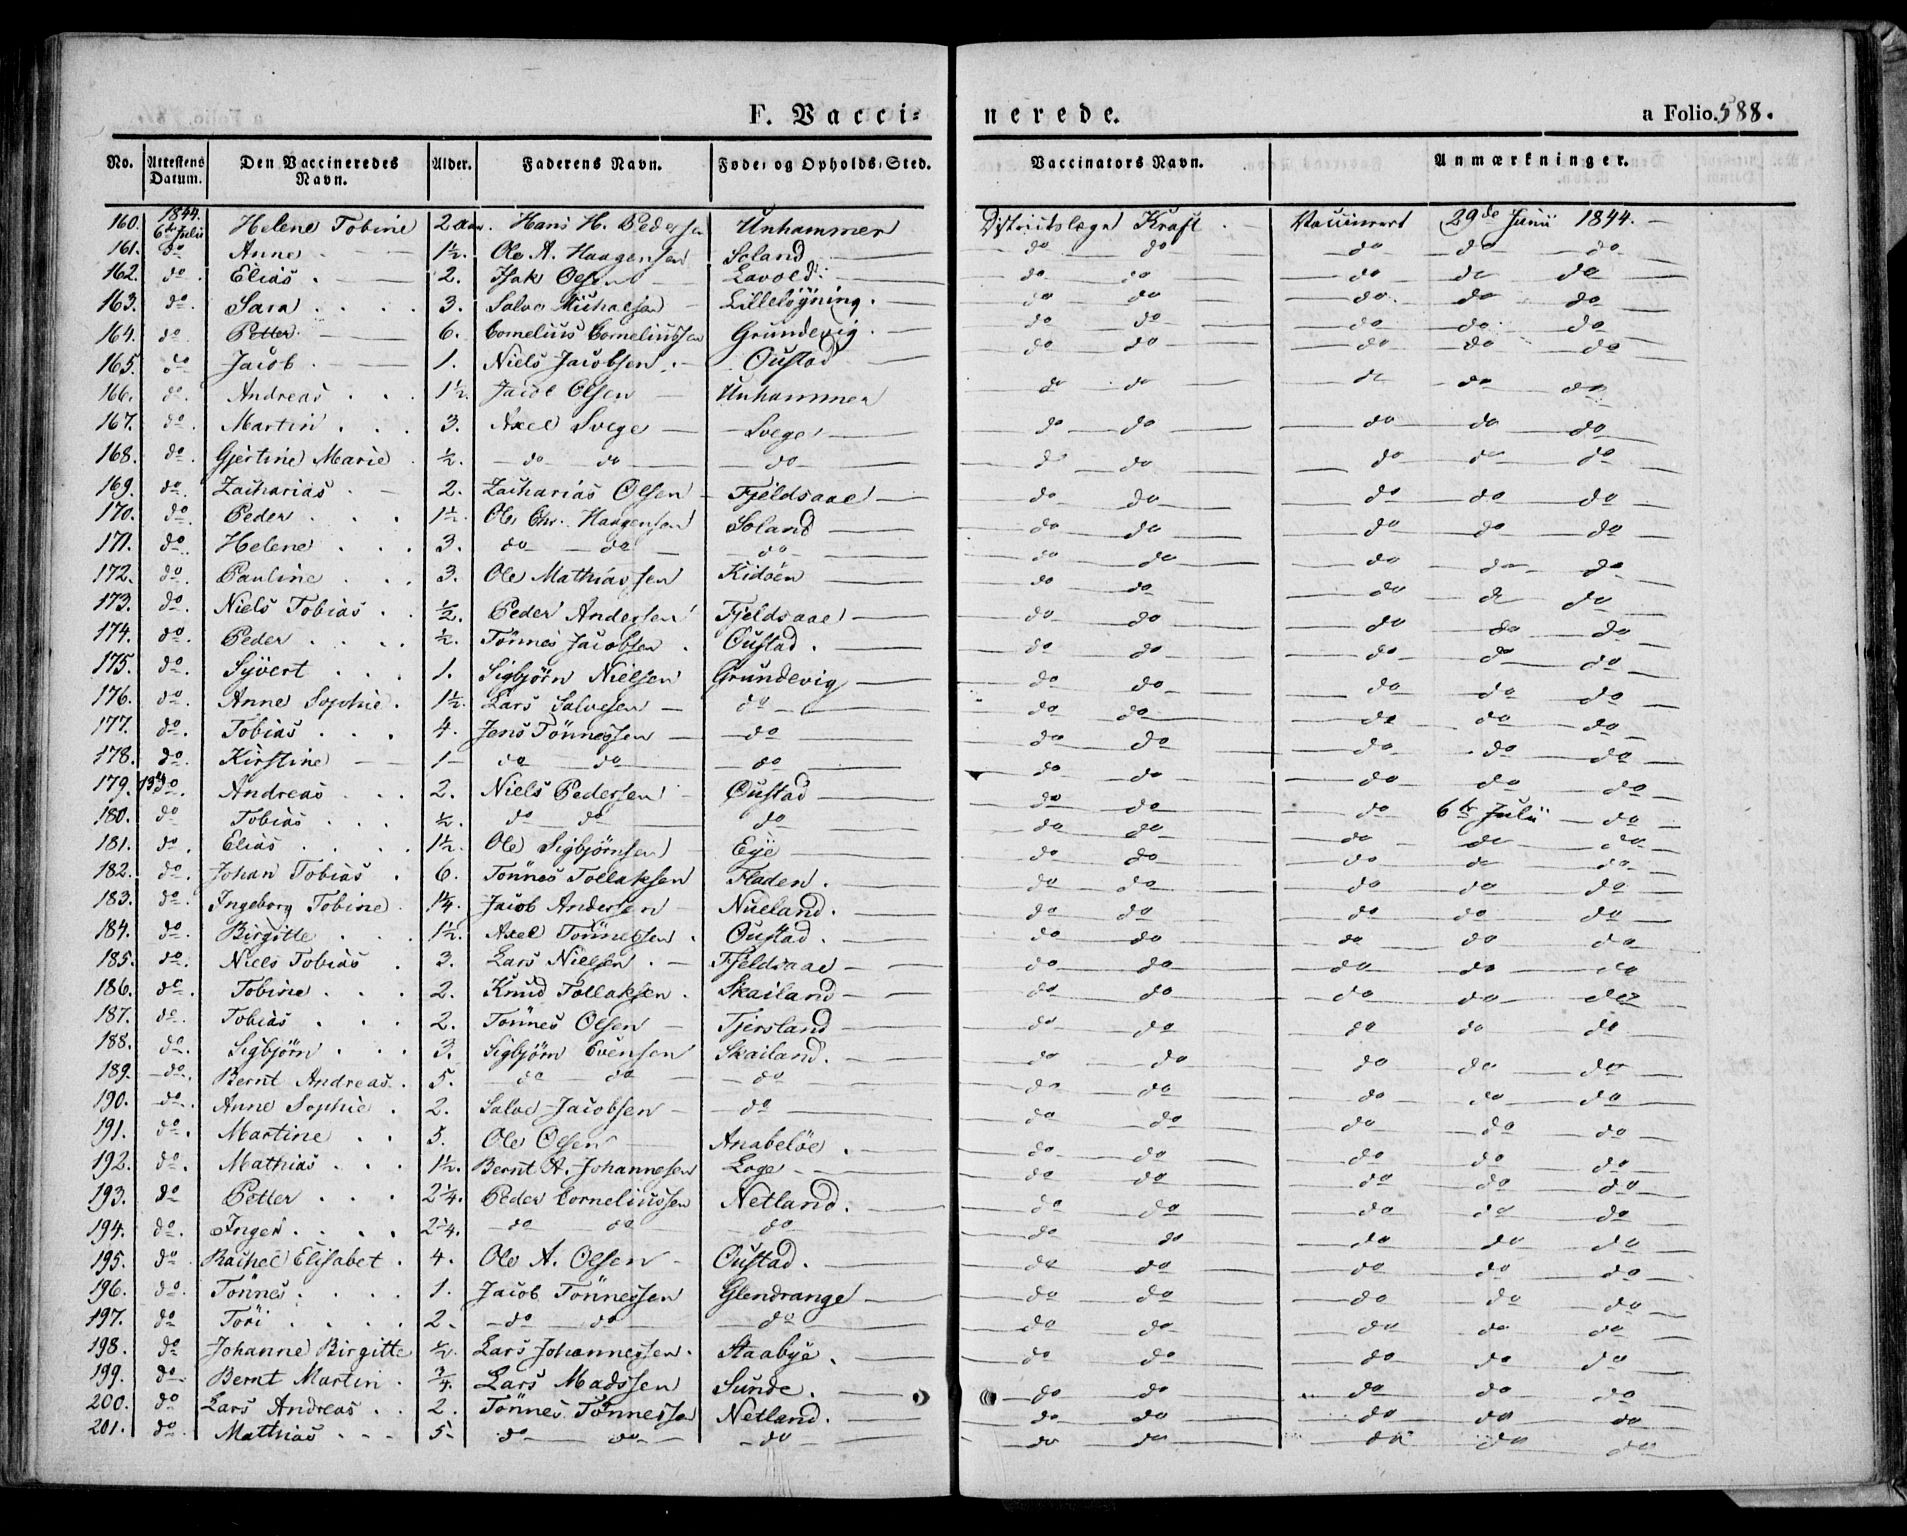 F. Vacci= nerede. a Folio. 588.
No. Attestens Datum. Den Vaccineredes Navn. Alder. Faderens Navn. Føde- og Opholds-Sted. Vaccinators Navn. Anmærkninger.
160. 1844. 6te Julii Helene Tobine 2 Aar. Hans H. Pedersen Unhammer Districtslæge Kraft Vaccineret 29de Junii 1844.
161. do Anne 1½. Ole A. Haagensen Soland do do do do do
162. do Elias 2. Isak Olsen Lavold do do do do do
163. do Sara 3. Salve Michaelsen Lilleløgning. do do do do do
164. do Petter 6. Cornelius Corneliussen Grundevig. do do do do do
165. do Jacob 1. Niels Jacobsen. Oustad do do do do do
166. do Andreas 1½. Jacob Olsen Unhammer do do do do do
167. do Martin 3. Axel Svege Svege do do do do do
168. do Gjertine Marie ½. do do do do do do do do
169. do Zacharias 2. Zacharias Olsen Fjeldsaae do do do do do
170. do Peder 1½. Ole Chr. Haagensen Soland do do do do do
171. do Helene 3. do do do do do do do do
172. do Pauline 3. Ole Mathiassen Kidöen do do do do do
173. do Niels Tobias ½. Peder Andersen Fjeldsaae do do do do do
174. do Peder ½. Tönnes Jacobsen Oustad. do do do do do
175. do Syvert 1. Sigbjørn Nielsen Grundevig do do do do do
176. do Anne Sophie. 1½. Lars Salvesen do do do do do do
177. do Tobias 4. Jens Tönnessen do do do do do do
178. do Kirstine 1 do do do do do do do do
179. 13de do Andreas 2. Niels Pedersen Oustad do do do do do
180. do Tobias ½. do do do do do do 6te Julii do
181. do Elias 1½. Ole Sigbjørnsen Eye do do do do do
182. do Johan Tobias 6. Tönnes Tollaksen Fladen. do do do do do
183. do Ingeborg Tobine 1¼. Jacob Andersen Nueland. do do do do do
184. do Birgitte 1½. Axel Tönnessen. Oustad. do do do do do
185. do Niels Tobias 3. Lars Nielsen. Fjeldsaae do do do do do
186. do Tobine 2. Knud Tollaksen. Skailand do do do do do
187. do Tobias 2. Tönnes Olsen Tjersland do do do do do
188. do Sigbjørn 3. Sigbjørn Evensen Skailand. do do do do do
189. do Bernt Andreas. 5. do do do do do do do do
190. do Anne Sophie 2. Salve Jacobsen do do do do do do
191. do Martine 5. Ole Olsen Anabeløe. do do do do do
192. do Mathias 1½. Bernt A. Johannesen Loge do do do do do
193. do Petter 2¼. Peder Corneliussen Netland. do do do do do
194. do Inger 2¼. do do do do do do do do
195. do Rachel Elisabet. 4. Ole A. Olsen Oustad. do do do do do
196. do Tönnes 1. Jacob Tönnessen Glendrange do do do do do
197. do Töri 2. do do do do do do do do
198. do Johanne Birgitte ½. Lars Johannessen. Staabye. do do do do do
199. do Bernt Martin ¾. Lars Madssen Sunde. do do do do do
200. do Lars Andreas 2. Tönnes Tönnessen Netland. do do do do do
201. do Mathias 5 do do do do do do do do